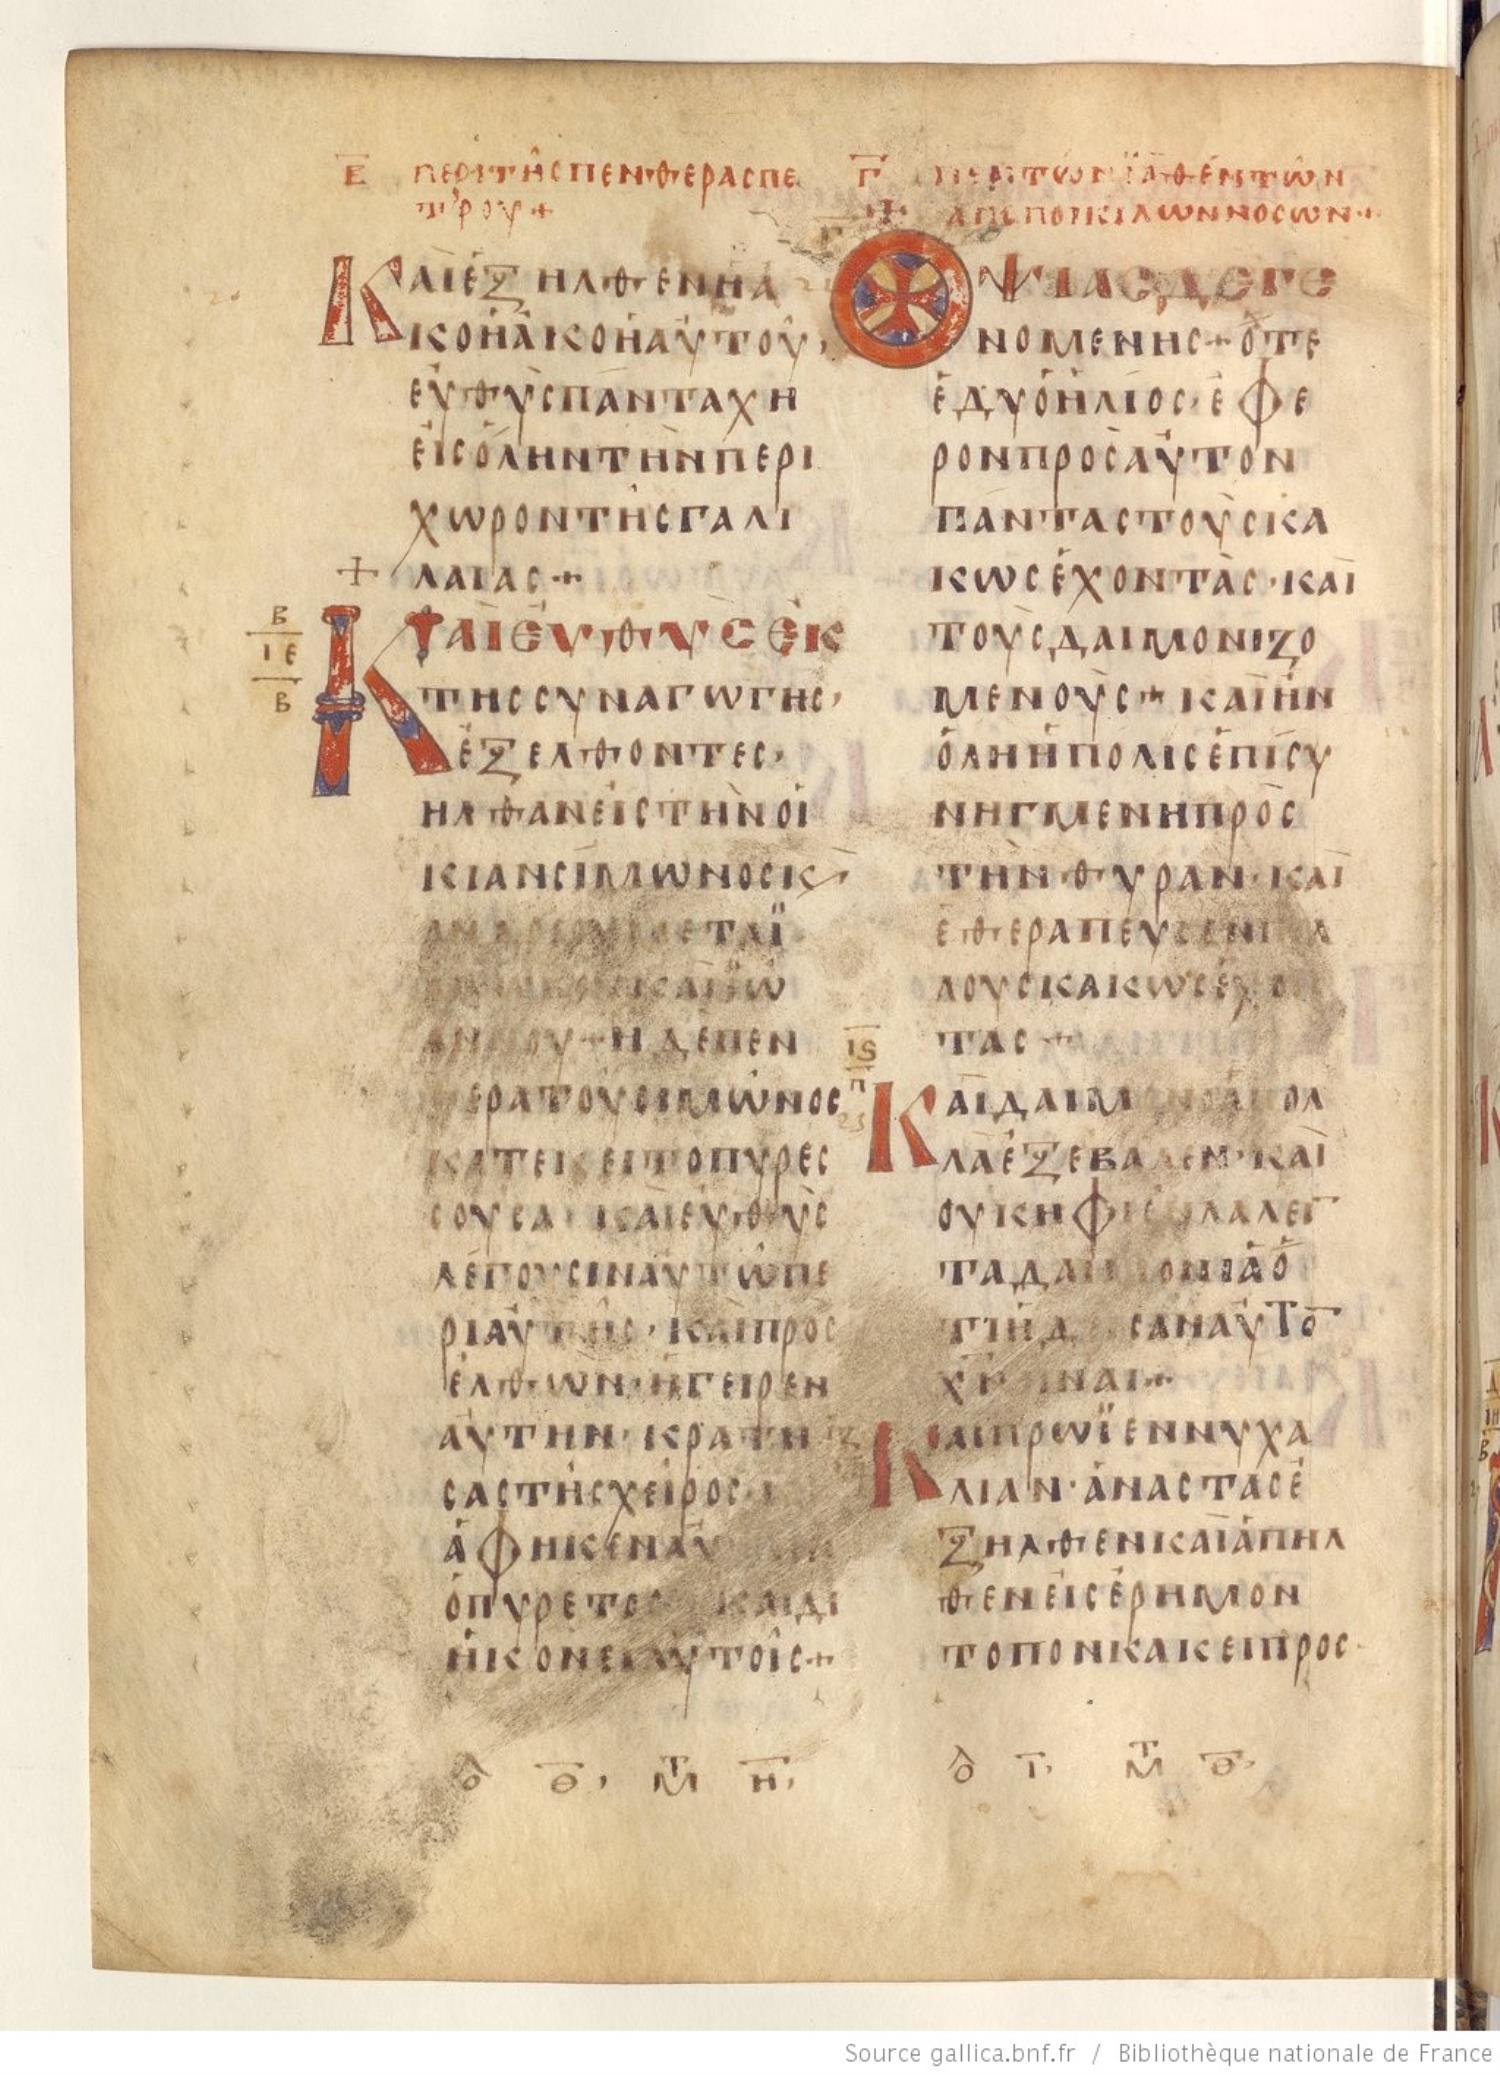 Β ΠΕΡΙ ΤΗΣ ΠΕΝΘΕΡΑΣ ΠΕ
ΤΡΟΥ +
ΚΑΙ ΕΞΗΛΘΕΝ Η Α
ΚΟΗ ΑΚΟΗ ΑΥΤΟΥ,
ΕΥΘΥΣ ΠΑΝΤΑΧΗ
ΕΙΣ ΟΛΗΝ ΤΗΝ ΠΕΡΙ
ΧΩΡΟΝ ΤΗΣ ΓΑΛΙ
ΛΑΙΑΣ +
Β
ΙΕ
Β
ΚΑΙ ΕΥΘΥΣ ΕΚ
ΤΗΣ ΣΥΝΑΓΩΓΗΣ,
ΕΞΕΛΘΟΝΤΕΣ,
ΗΛΘΑΝ ΕΙΣ ΤΗΝ ΟΙ
ΚΙΑΝ ΣΙΜΩΝΟΣ Κ
ΜΕΤΑ Ϊ
ΚΑΙ ΙΩ
ΑΝΝΟΥ + Η ΔΕ ΠΕΝ
ΘΕΡΑ ΤΟΥ ΣΙΜΩΝΟΣ
ΚΑΤΕΚΕΙΤΟ ΠΥΡΕΣ
ΣΟΥΣΑ · ΚΑΙ ΕΥΘΥΣ
ΛΕΓΟΥΣΙΝ ΑΥΤΩ ΠΕ
ΡΙ ΑΥΤΗΣ · ΚΑΙ ΠΡΟΣ
ΕΛΘΩΝ · ΗΓΕΙΡΕΝ
ΑΥΤΗΝ · ΚΡΑΤΗ
ΣΑΣ ΤΗΣ ΧΕΙΡΟΣ
ΑΦΗΚΕΝ ΑΥ
Ο ΠΥΡΕΤΟΣ ΚΑΙ ΔΙ
ΗΚΟΝΕΙ ΑΥΤΟΙΣ +
Γ ΠΕΡΙ ΤΩΝ ΪΑΘΕΝΤΩΝ
ΑΠΟ ΠΟΙΚΙΛΩΝ ΝΟΣΩΝ +
ΟΨΙΑΣ ΔΕ ΓΕ
ΝΟΜΕΝΗΣ + ΟΤΕ
ΕΔΥ Ο ΗΛΙΟΣ · ΕΦΕ
ΡΟΝ ΠΡΟΣ ΑΥΤΟΝ
ΠΑΝΤΑΣ ΤΟΥΣ ΚΑ
ΚΩΣ ΕΧΟΝΤΑΣ · ΚΑΙ
ΤΟΥΣ ΔΑΙΜΟΝΙΖΟ
ΜΕΝΟΥΣ + ΚΑΙ ΗΝ
ΟΛΗ Η ΠΟΛΙΣ ΕΠΙΣΥ
ΝΗΓΜΕΝΗ ΠΡΟΣ
ΤΗΝ ΘΥΡΑΝ · ΚΑΙ
ΕΘΕΡΑΠΕΥΣΕΝ
ΛΟΥΣ ΚΑΚΩΣ ΕΧΟ
ΤΑΣ +
ΙϚ
ΚΑΙ ΔΑΙΜΟΝΙΑ ΠΟΛ
ΛΑ ΕΞΕΒΑΛΕΝ · ΚΑΙ
ΟΥΚ ΗΦΙΕΝ ΛΑΛΕΙ
ΤΑ ΔΑΙΜΟΝΙΑ Ο
ΤΙ ΗΔ ΣΑΝ ΑΥΤΟ
ΧΝ ΕΙΝΑΙ +
ΚΑΙ ΠΡΩΪ ΕΝΝΥΧΑ
ΛΙΑΝ · ΑΝΑΣΤΑΣ Ε
ΞΗΛΘΕΝ ΚΑΙ ΑΠΗΛ
ΘΕΝ ΕΙΣ ΕΡΗΜΟΝ
ΤΟΠΟΝ ΚΑΚΕΙ ΠΡΟΣ
Source gallica.bnf.fr / Bibliothèque nationale de France